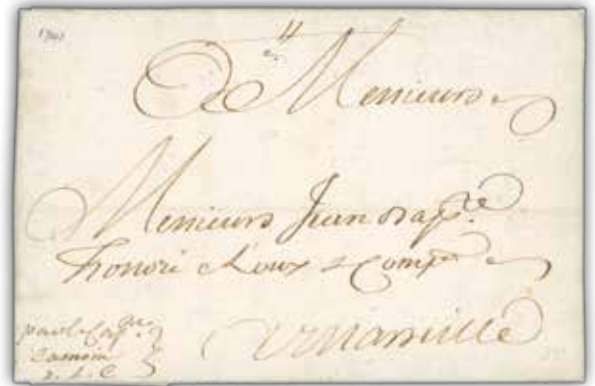 A Messieurs
Messieurs Jean Bapte.
honoré Roux & Compe
A Marseille
par le Cape
2. L. C